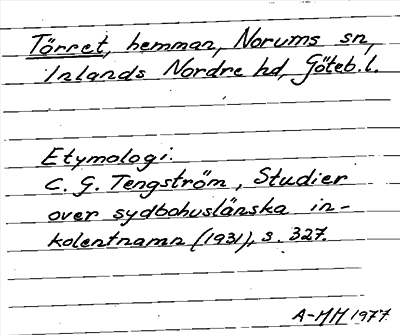 Törret, hemman, Norums sn,
Inlands Nordre hd, Göteb. l.
Etymologi:
C. G. Tengström, Studier
över sydbohuslänska in-
kolentnamn (1931), s. 327.
A-MH 1977